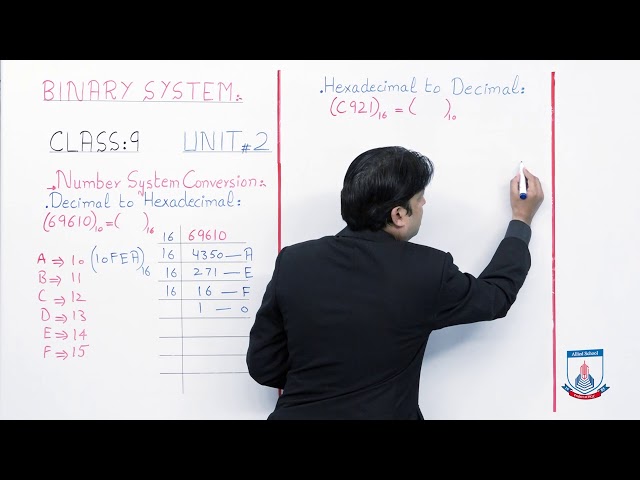 BINARY SYSTEM:
CLASS:9 UNIT#2
→Number System Conversion:
.Decimal to Hexadecimal:
(69610)₁₀=( )₁₆
A ⇒ 10 (10FEA)₁₆
B ⇒ 11
C ⇒ 12
D ⇒ 13
E ⇒ 14
F ⇒ 15
16 69610
16 4350 — A
16 271 — E
16 16 — F
1 — 0
.Hexadecimal to Decimal:
(C921)₁₆=( )₁₀
Allied School